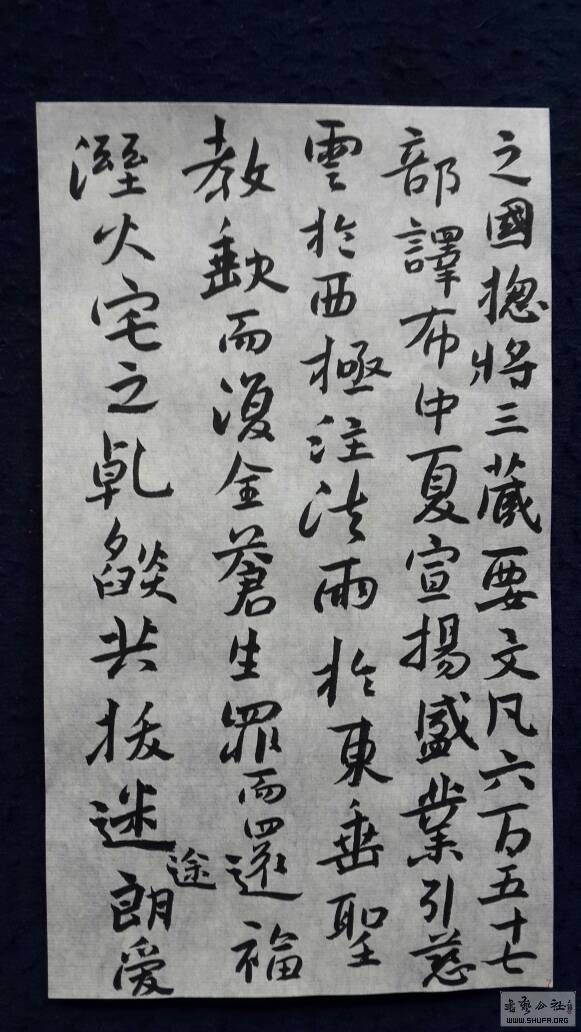 之國揔將三藏要文凡六百五十七
部譯布中夏宣揚盛業引慈
雲於西極注法雨於東垂聖
教缺而復全蒼生罪而還福
溼火宅之乾燄共拔迷途朗愛
書藝公社
WWW.SHUFA.ORG